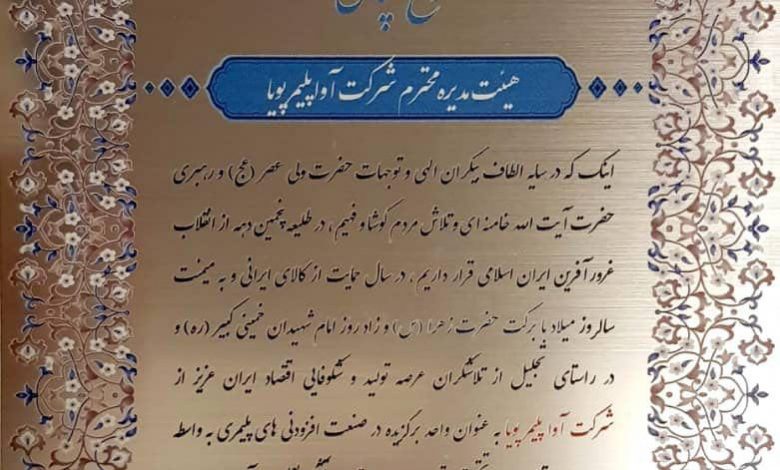 هیئت مدیره محترم شرکت آوا پلیمر پویا
اینک که در سایه الطاف بیکران الهی و توجهات حضرت ولی عصر (عج) و رهبری
حضرت آیت الله خامنه ای و تلاش مردم کوشا و فهیم ، در طلیعه پنجمین دهه از انقلاب
غرور آفرین ایران اسلامی قرار داریم ، در سال حمایت از کالای ایرانی و به میمنت
سالروز میلاد با برکت حضرت زهرا (س) و زاد روز امام شهیدان خمینی کبیر (ره) و
در راستای تجلیل از تلاشگران عرصه تولید و شکوفایی اقتصاد ایران عزیز از
شرکت آوا پلیمر پویا به عنوان واحد برگزیده در صنعت افزودنی های پلیمری به واسطه